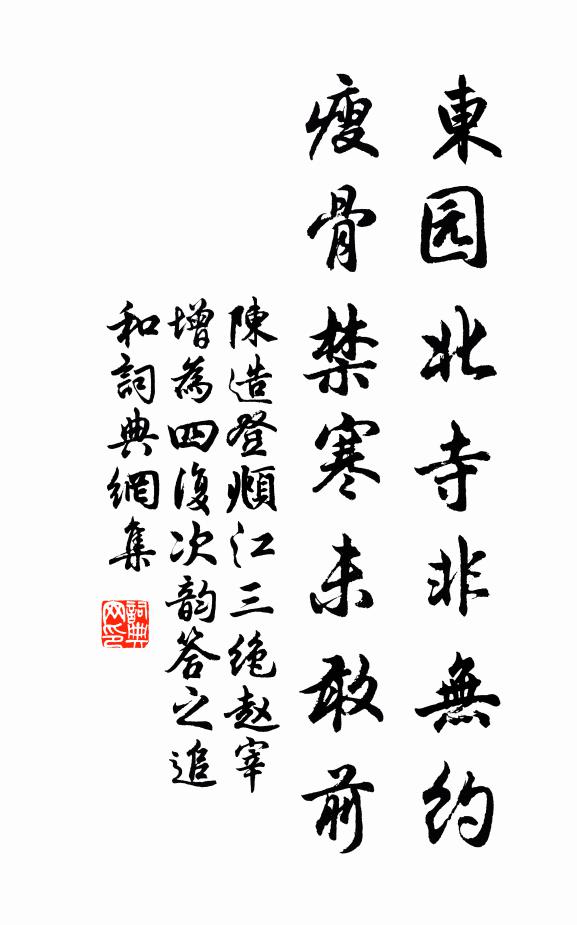 東园北寺非無約
瘦骨禁寒未敢前
陳造登頫江三绝赵宰
增為四復次韵答之追
和詞典網集
詞典
网印